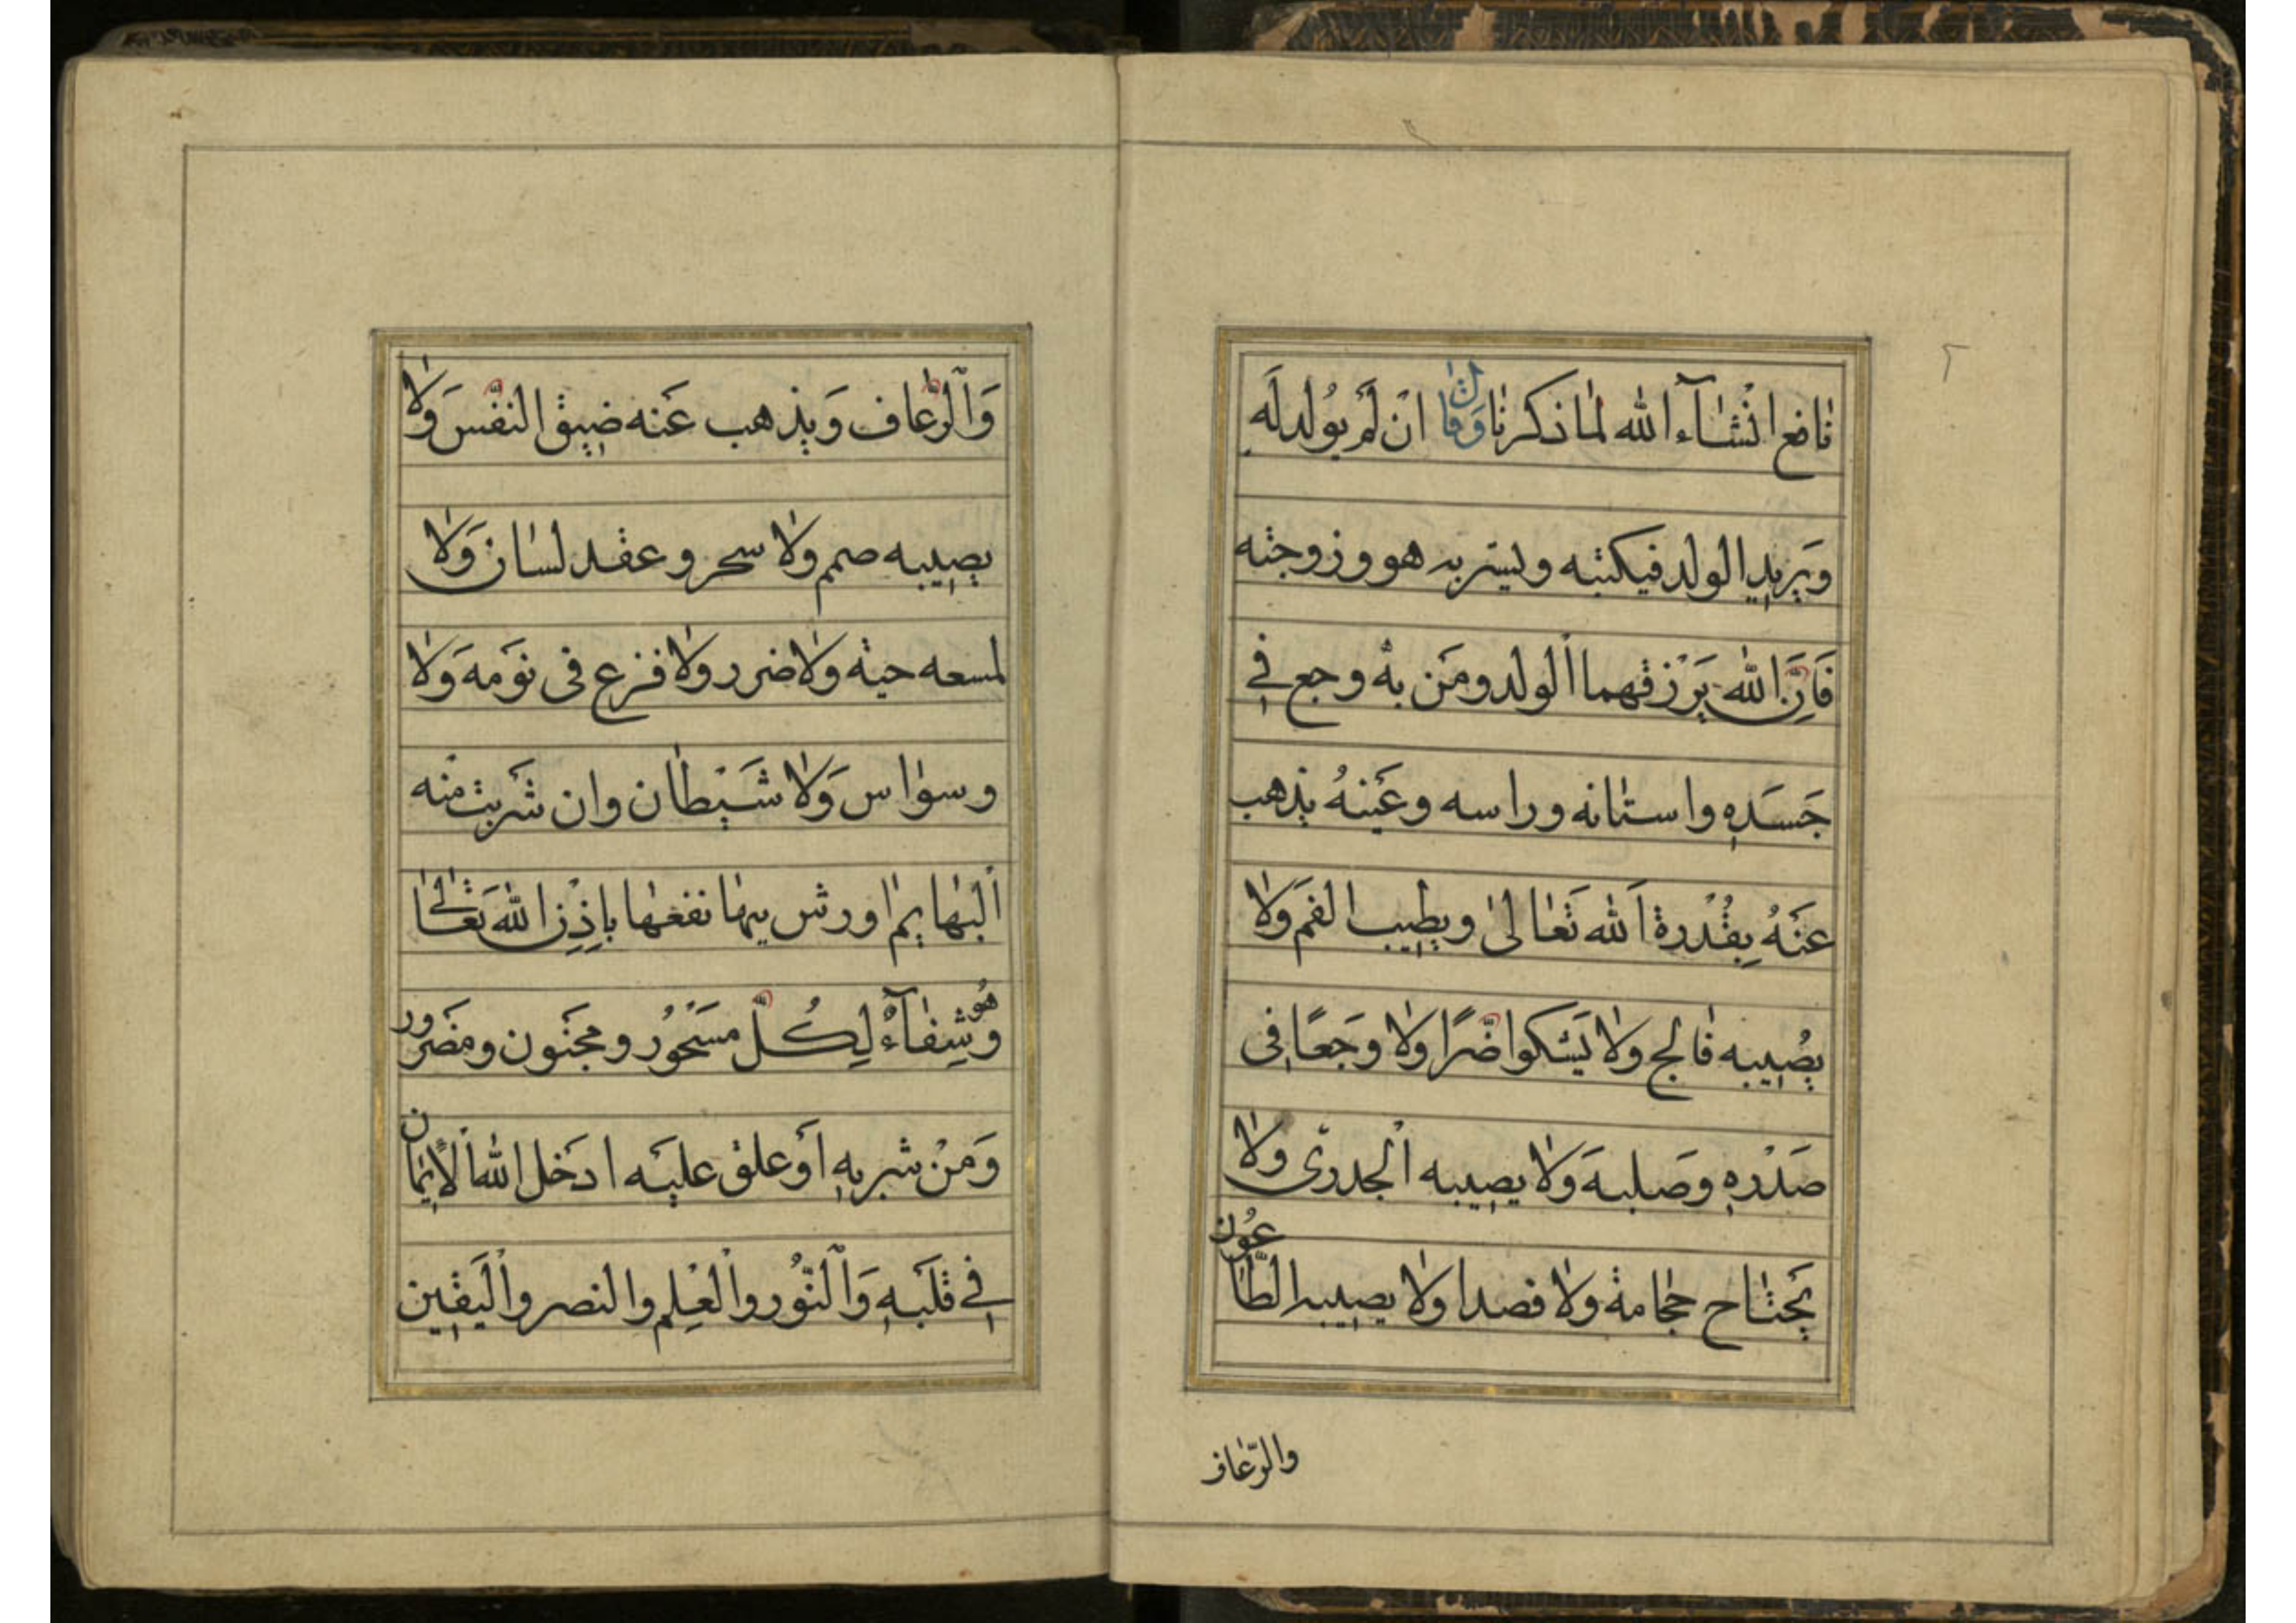 ٢
نافع انشآء الله لما ذكرنا وقال ان لم يولد له
ويريد الولد فيكتبه وليشربه هو وزوجته
فَاِنَّ الله يَرْزقهما الولد ومَن به وجع في
جَسَدِهِ واسنانه وراسه وعَينهُ يذهب
عَنهُ بِقُدْرة الله تَعالىٰ ويطيب الفم ولا
يصُيبه فالج ولا يَشكوا ضّرًا ولا وجَعًا في
صَدْرِهِ وصَلبه وَلا يصيبه الجدرى ولا
يَحتاح حجامة ولا فصدا ولا يصيبه الطّاعُون
والرّعاف
وَالرّعاف وَيذهب عَنه ضيق النفّس وَلا
يصيبه صمم ولا سحر وعقد لسان وَلا
لمسعه حية ولا ضرر ولا فزع فى نوَمه وَلا
وسواس وَلا شَيْطان وان شَربت منه
البهايم اورش بيها نفعها بِاِذِن الله تعَالىٰ
وهُو شِفآءٌ لِكُلّ مسَحْوُر ومجَنون ومضَرور
وَمَنْ شربهِ اوَعلق عليَه ادخَل الله الاِيمان
فِي قلَبهِ وَالنّوُر والْعِلم والنصر واليَقين